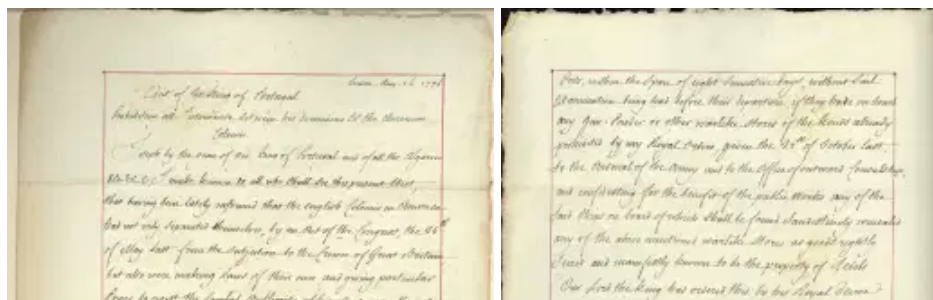 1776
Edict of the King of Portugal
Prohibiting all Commerce between his dominions & the American
Colonies.
by the name of the King of Portugal and of all the Algarves
make known to all who shall see this present Edict,
that having been lately informed that the English Colonies in America
had not only separated themselves, by an Act of the Congress, the
of May last from the Subjection to the Crown of Great Britain
but also were making Laws of their own and giving particular
the lawful Authority
within the Space of eight Successive days, without Sail
Examination being had before their departure, if they have on board
any Gun Powder or other warlike Stores of the kinds already
prohibited by my Royal given the of October last,
by the Arsenal of the Army and to the Office of outward
and confiscating for the benefit of the public Works any of the
said Ships on board of which shall be found fraudulently concealed
any of the above mentioned warlike Stores as goods rightly
Seized and manifestly known to be the property of Rebels
Our Lord the King has this by his Royal